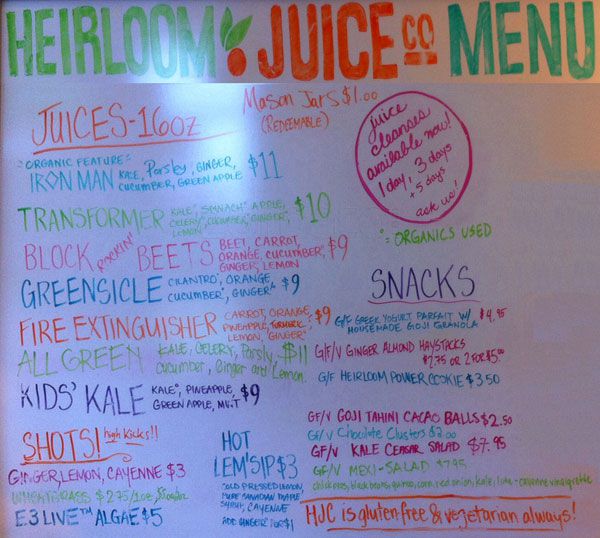 HEIRLOOM JUICE CO MENU
Mason Jars $1.00
(REDEEMABLE)
JUICES-16oz
"ORGANIC FEATURE"
IRON MAN KALE, Parsley, GINGER, $11
CUCUMBER, GREEN APPLE
TRANSFORMER KALE° SPINACH° APPLE, $10
CELERY°, CUCUMBER°, GINGER°,
LEMON
BLOCK ROCKIN' BEETS BEET, CARROT, $9
ORANGE, CUCUMBER,
GINGER, LEMON
GREENSICLE CILANTRO°, ORANGE, $9
CUCUMBER°, GINGER°
FIRE EXTINGUISHER CARROT, ORANGE, $9
PINEAPPLE, TURMERIC,
LEMON, GINGER°
ALL GREEN KALE, CELERY, Parsly, $11
cucumber, Ginger and Lemon.
KIDS' KALE KALE°, PINEAPPLE, $9
GREEN APPLE, MINT
SHOTS! high kicks!!
GINGER, LEMON, CAYENNE $3
WHEATGRASS $2.75/1oz
E3 LIVE™ ALGAE $5
HOT
LEM'SIP $3
COLD PRESSED LEMON,
PURE CANADIAN MAPLE
SYRUP, CAYENNE
ADD GINGER FOR $1
juice
cleanses
available now!
1 day, 3 days
+ 5 days
ask us!
° = ORGANICS USED
SNACKS
G/F GREEK YOGURT PARFAIT W/ $4.95
HOUSEMADE GOJI GRANOLA
G/F/V GINGER ALMOND HAYSTACKS
$2.75 OR 2 FOR $5.00
G/F HEIRLOOM POWER COOKIE $3.50
GF/V GOJI TAHINI CACAO BALLS $2.50
GF/V Chocolate Clusters $2.00
GF/V KALE CEASAR SALAD $7.95
GF/V MEXI-SALAD $7.95
chick peas, black beans, quinoa, corn, red onion, kale, lime-cayenne vinaigrette
HJC is gluten free & vegetarian always!